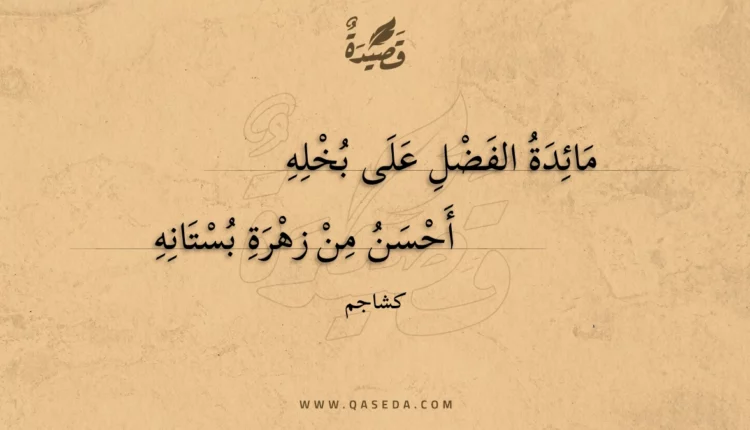 قَصِيْدَةٌ
مَائِدَةُ الفَضْلِ عَلَى بُخْلِهِ
أَحْسَنُ مِنْ زهْرَةِ بُسْتَانِهِ
كشاجم
WWW.QASEDA.COM